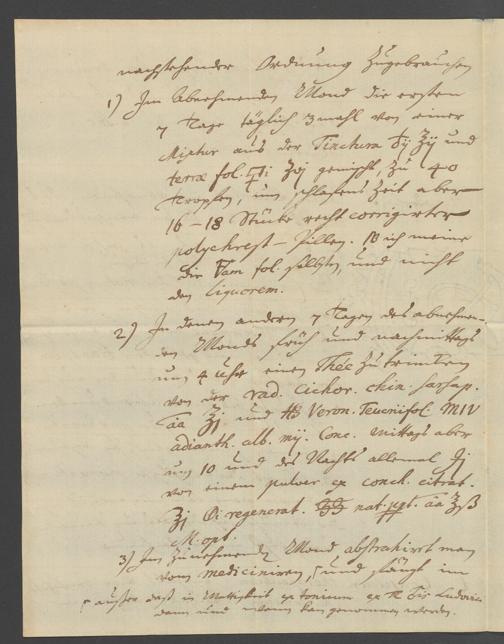 nachstehender Ordnung zugebrauchen
1) Im Abnehmenden Mond die ersten
7 Tage täglich 3mahl von einer
Mixtur aus der Tinctura ʒij und
terræ fol. ʒj gemischt, zu 40
tropfen, um schlafens Zeit aber
16 – 18 Stücke recht corrigirter
polychrest – Pillen. NB ich meine
die fol. selbsten, und nicht
den liquorem.
2) In denen anderen 7 Tagen des abnehmen-
den Monds früh und nachmittags
um 4 Uhr einen Thée zu trincken
von der rad. Cichor. chin. sarsap.
āā ℥j und Hb Veron. MIV
adianth. alb. mij. Conc. Mittags aber
um 10 und des Nachts allemal
von einem pulver ex conch. citrat.
ʒj regenerat. nat. ppt. āā
M. opt.
3) Im Zunehmenden Mond abstrahirt man
vom mediciniren, und fängt im
außer daß in Mattigkeit ex
dann und wann kan genommen werden.